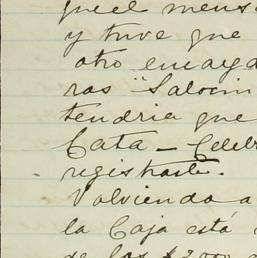 que el mens
y tuve que
otro encarga
ras "Salocin
tendria que
Cata - Celeb
registrarte.
Volviendo a
la Caja está
de los $2000 a